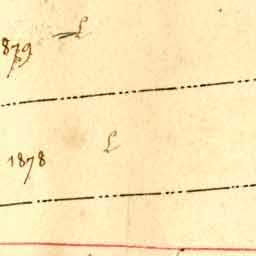 879 L
1878 L